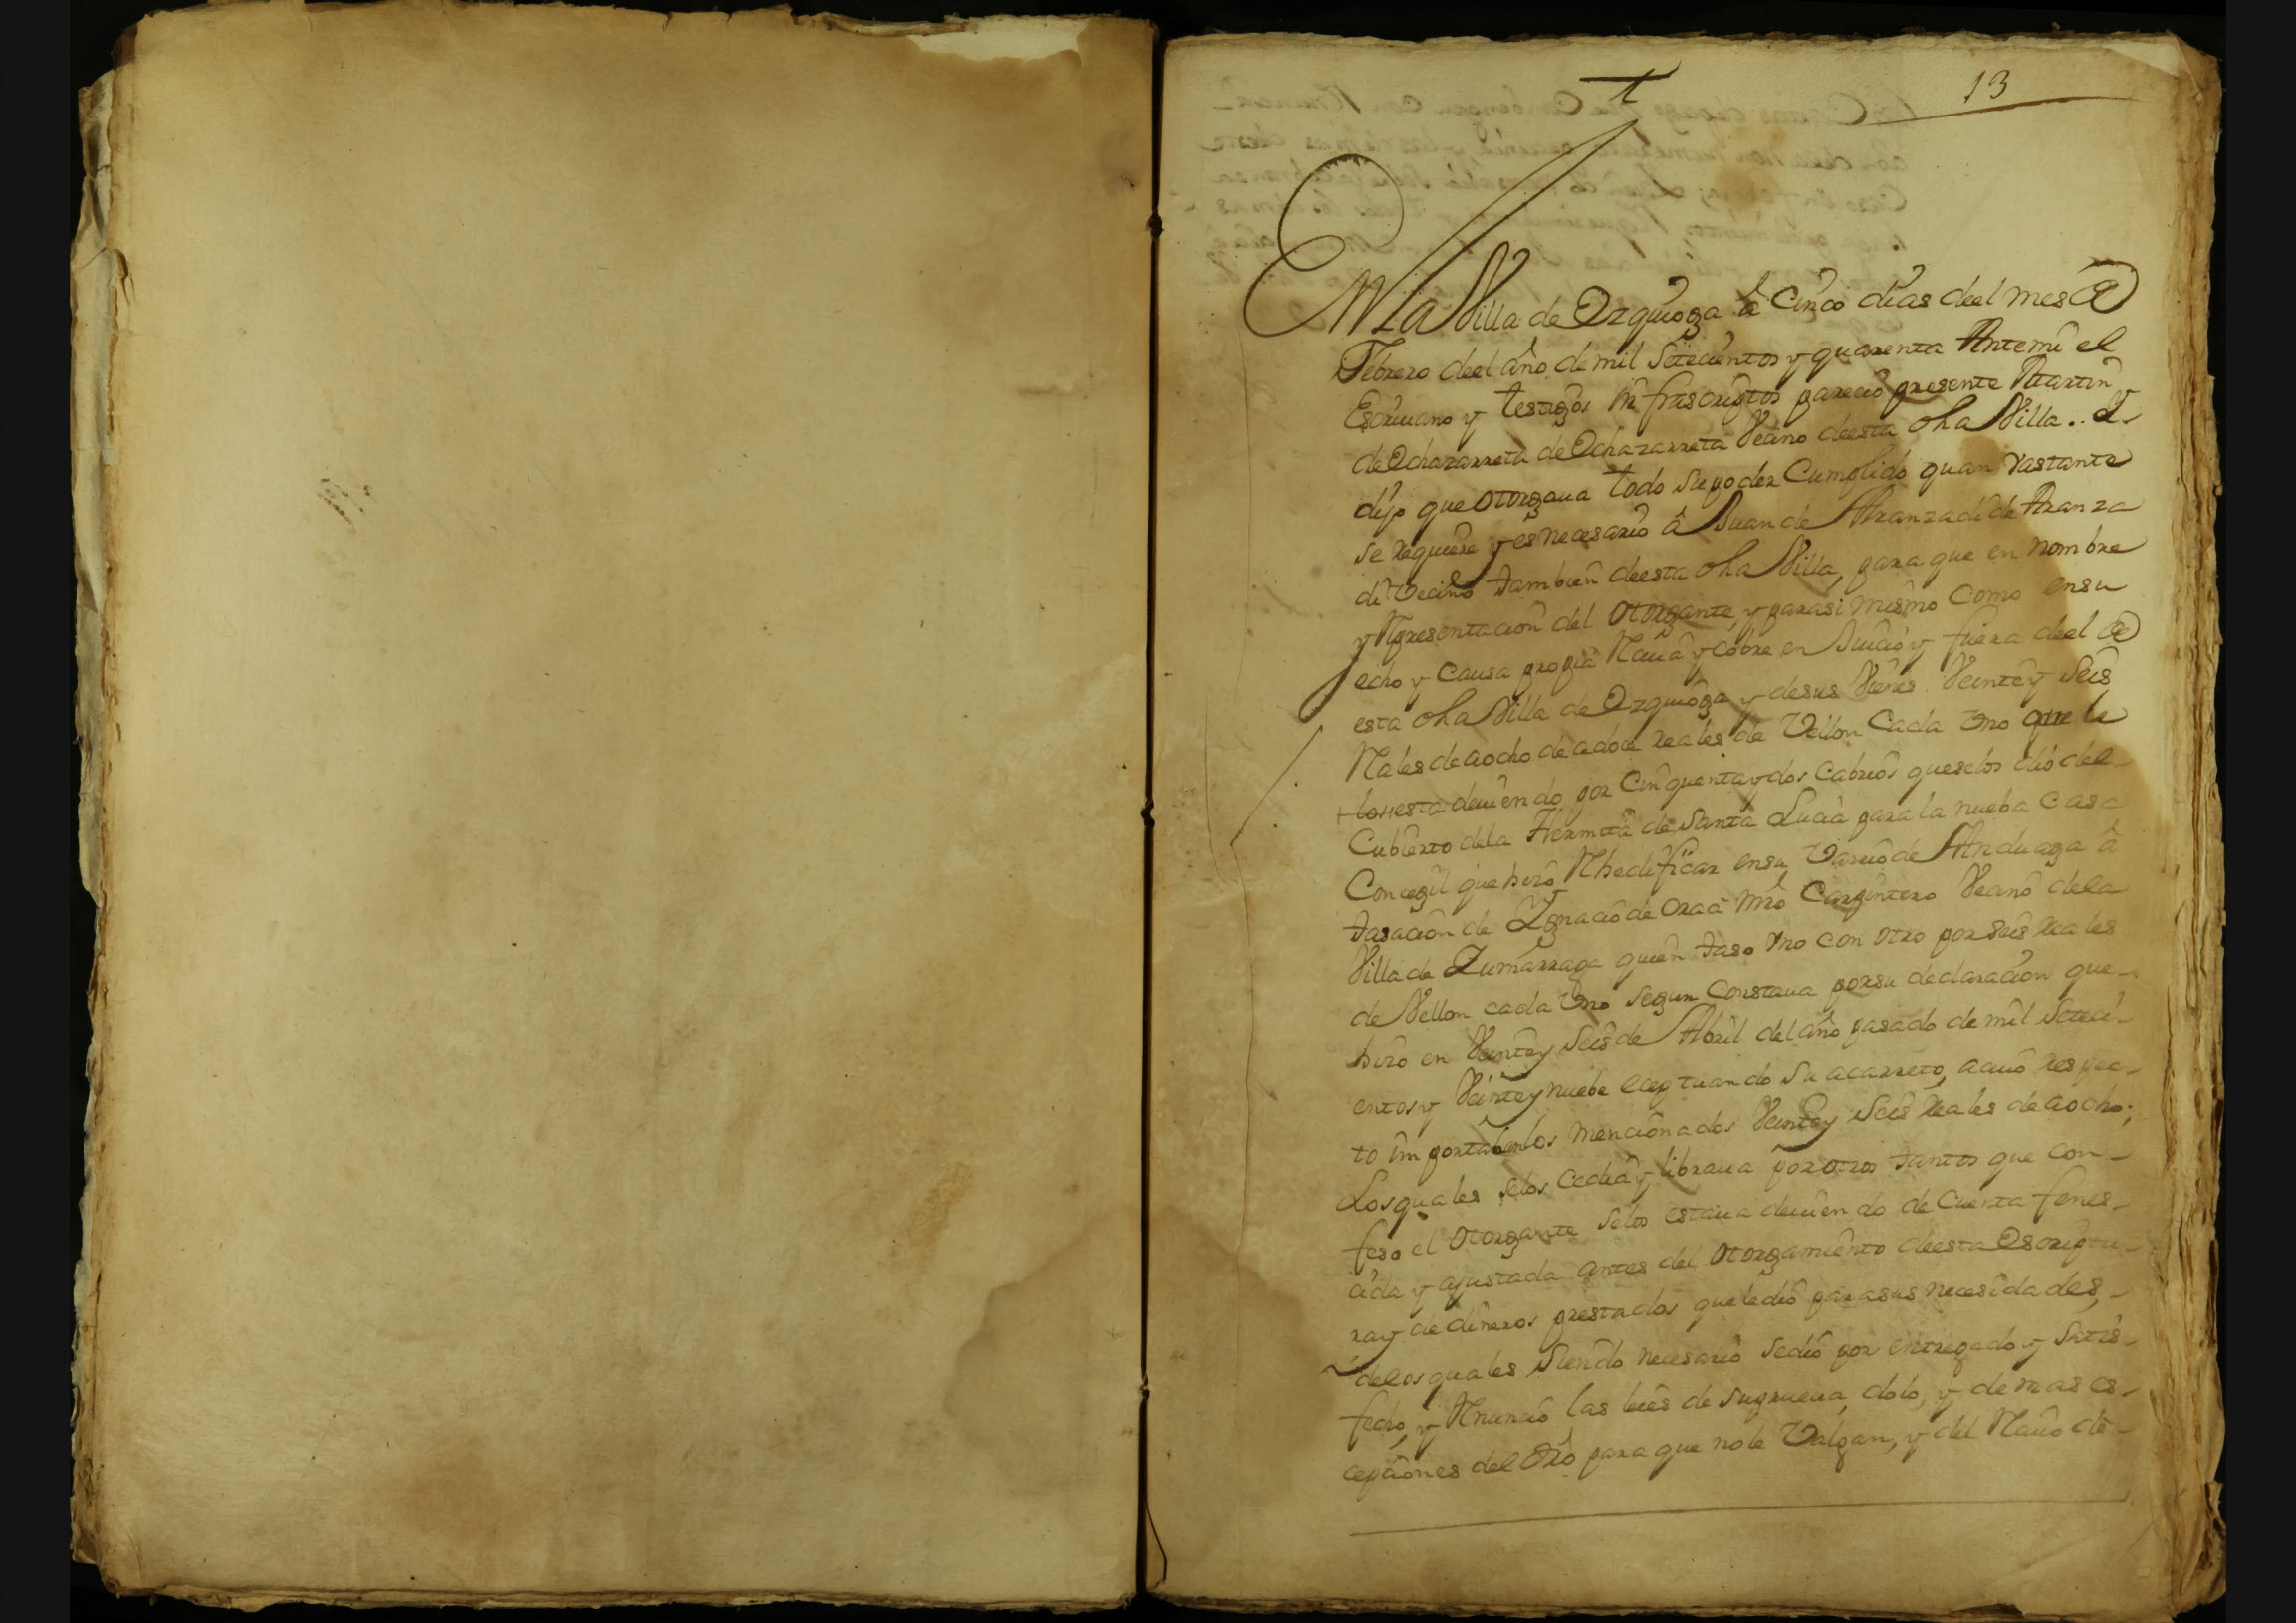 13
En la Villa de Ezquioga â Cinco dias deel mes de
Febrero deel año de mil Setecientos y quarenta Antemi el
Escriuano y testigos infrascriptos pareció presente Martin
de Ochazarreta de Ochazarreta Vecino deesta dha Villa.. Y
dijo que otorgaua todo su poder Cumplido quan vastante
se requiere y es necesario â Juan de Aranzadi de Aranza
di Vecino tambien deesta dha Villa, para que en nombre
y Representacion del otorgante, y para si mismo Como en su
echo y Causa propia Reciua y cobre en Juicio y fuera deel de
esta dha Villa de Ezquioga y de sus Vienes Veinte y Seis
Reales de a ocho de a doce reales de Vellon Cada Uno que le
los esta deuiendo por Cinquenta y dos Cabrios que se los dió del
Cubierto dela Hermita de Santa Lucia para la nueba Casa
Concegil que hizo Rhedificar en su Varrio de Anduaga â
tasacion de Ygnacio de Oraa Mro Carpintero Vecino dela
Villa de Zumarraga quien taso Uno con otro por seis reales
de Vellon cada Uno segun Constaua por su declaracion que
hizo en Veinte y Seis de Abril del año pasado de mil Seteci-
entos y Veinte y nuebe eceptuando su acarreto, a cuio respec-
to importaban los mencionados Veinte y Seis Reales de a ocho;
Los quales se los Cedia y libraua por otros tantos que con-
feso el otorgante selos estaua deuiendo de Cuenta fenes-
cida y ajustada antes del otorgamiento deesta Escriptu-
ra y de dineros prestados que le dió para sus necesidades,
de los quales siendo necesario se dió por entregado y Satis-
fecho, y Renunció las leies de su prueua, dolo, y demas es-
cepciones del dro para que no le Valgan, y del Reciuo de-